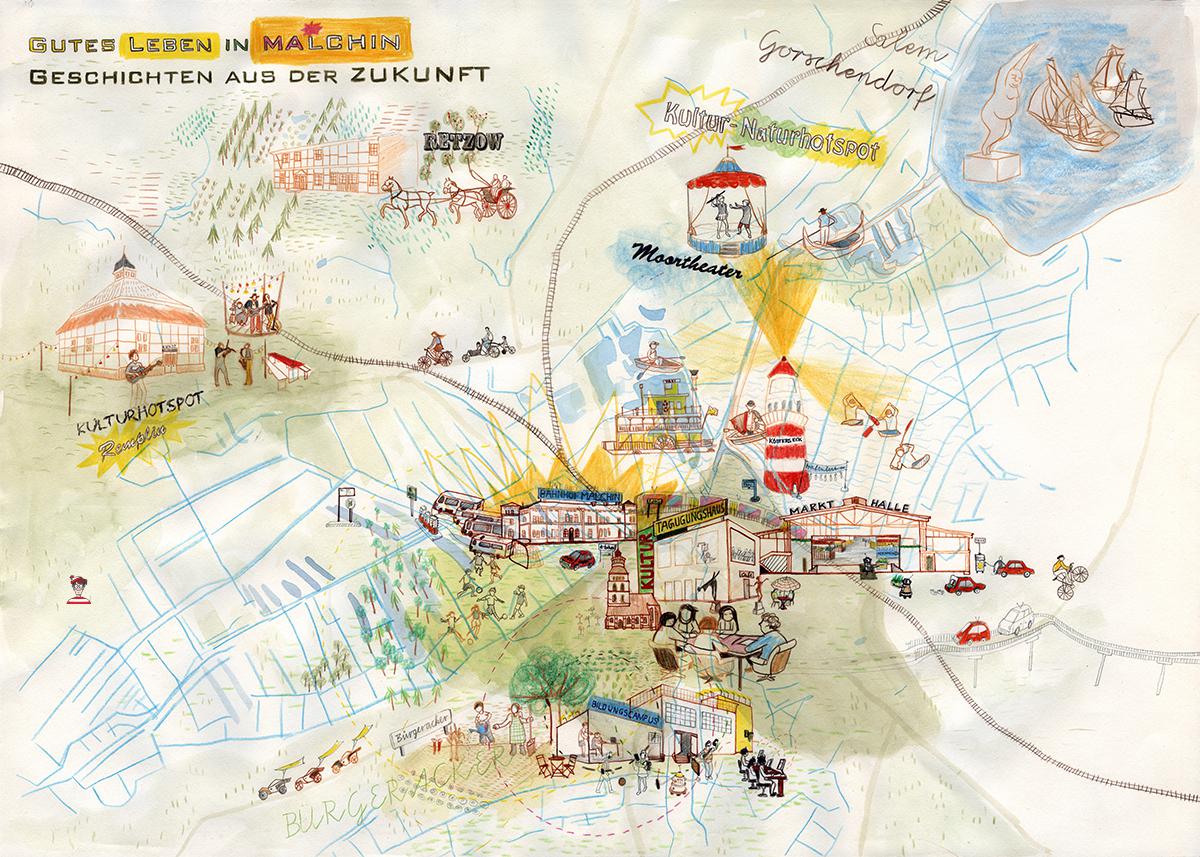 GUTES LEBEN IN MALCHIN
GESCHICHTEN AUS DER ZUKUNFT
Salem
Gorschendorf
Kultur-Naturhotspot
RETZOW
Moortheater
KULTURHOTSPOT
Remplin
BAHNHOF MALCHIN
KULTUR
TAGUGUNGSHAUS
MARKT HALLE
BILDUNGSCAMPUS
Bürgeracker
BÜRGERACKER